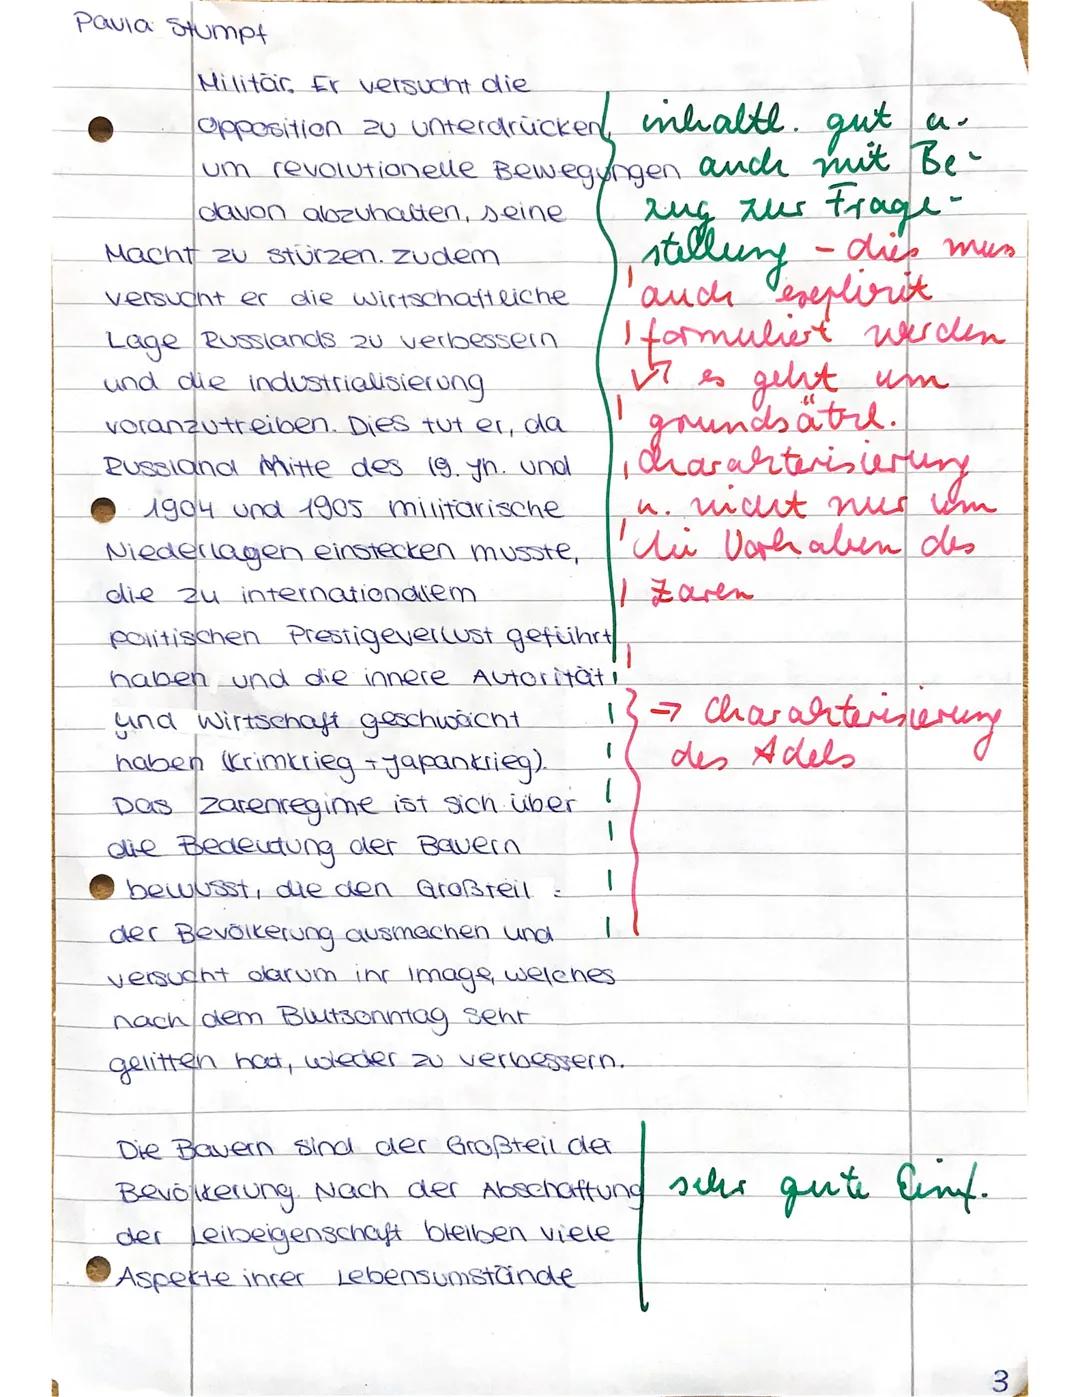 Paula Stumpf
Militär. Er versucht die
Opposition zu unterdrücken,
um revolutionelle Bewegungen
davon abzuhalten, seine
Macht zu stürzen. Zudem
versucht er die wirtschaftliche
Lage Russlands zu verbessern
und die industrialisierung
voranzutreiben. Dies tut er, da
Russland Mitte des 19. Jh. und
1904 und 1905 militärische
Niederlagen einstecken musste,
die zu internationalem
politischen Prestigeverlust geführt
haben und die innere Autorität
und Wirtschaft geschwächt
haben (Krimkrieg + Japankrieg).
Das Zarenregime ist sich über
die Bedeutung der Bauern
bewusst, die den Großteil
der Bevölkerung ausmachen und
versucht darum ihr Image, welches
nach dem Blutsonntag sehr
gelitten hat, wieder zu verbessern.
Die Bauern sind der Großteil der
Bevölkerung. Nach der Abschaffung
der Leibeigenschaft bleiben viele
Aspekte ihrer Lebensumstände
inhaltl. gut u.
auch mit Be-
zug zur Frage-
stellung – dies muss
auch explizit
formuliert werden
↳ es geht um
grundsätzl.
Charakterisierung
u. nicht nur um
die Vorhaben des
Zaren
→ Charakterisierung
des Adels
sehr gute Einf.
3